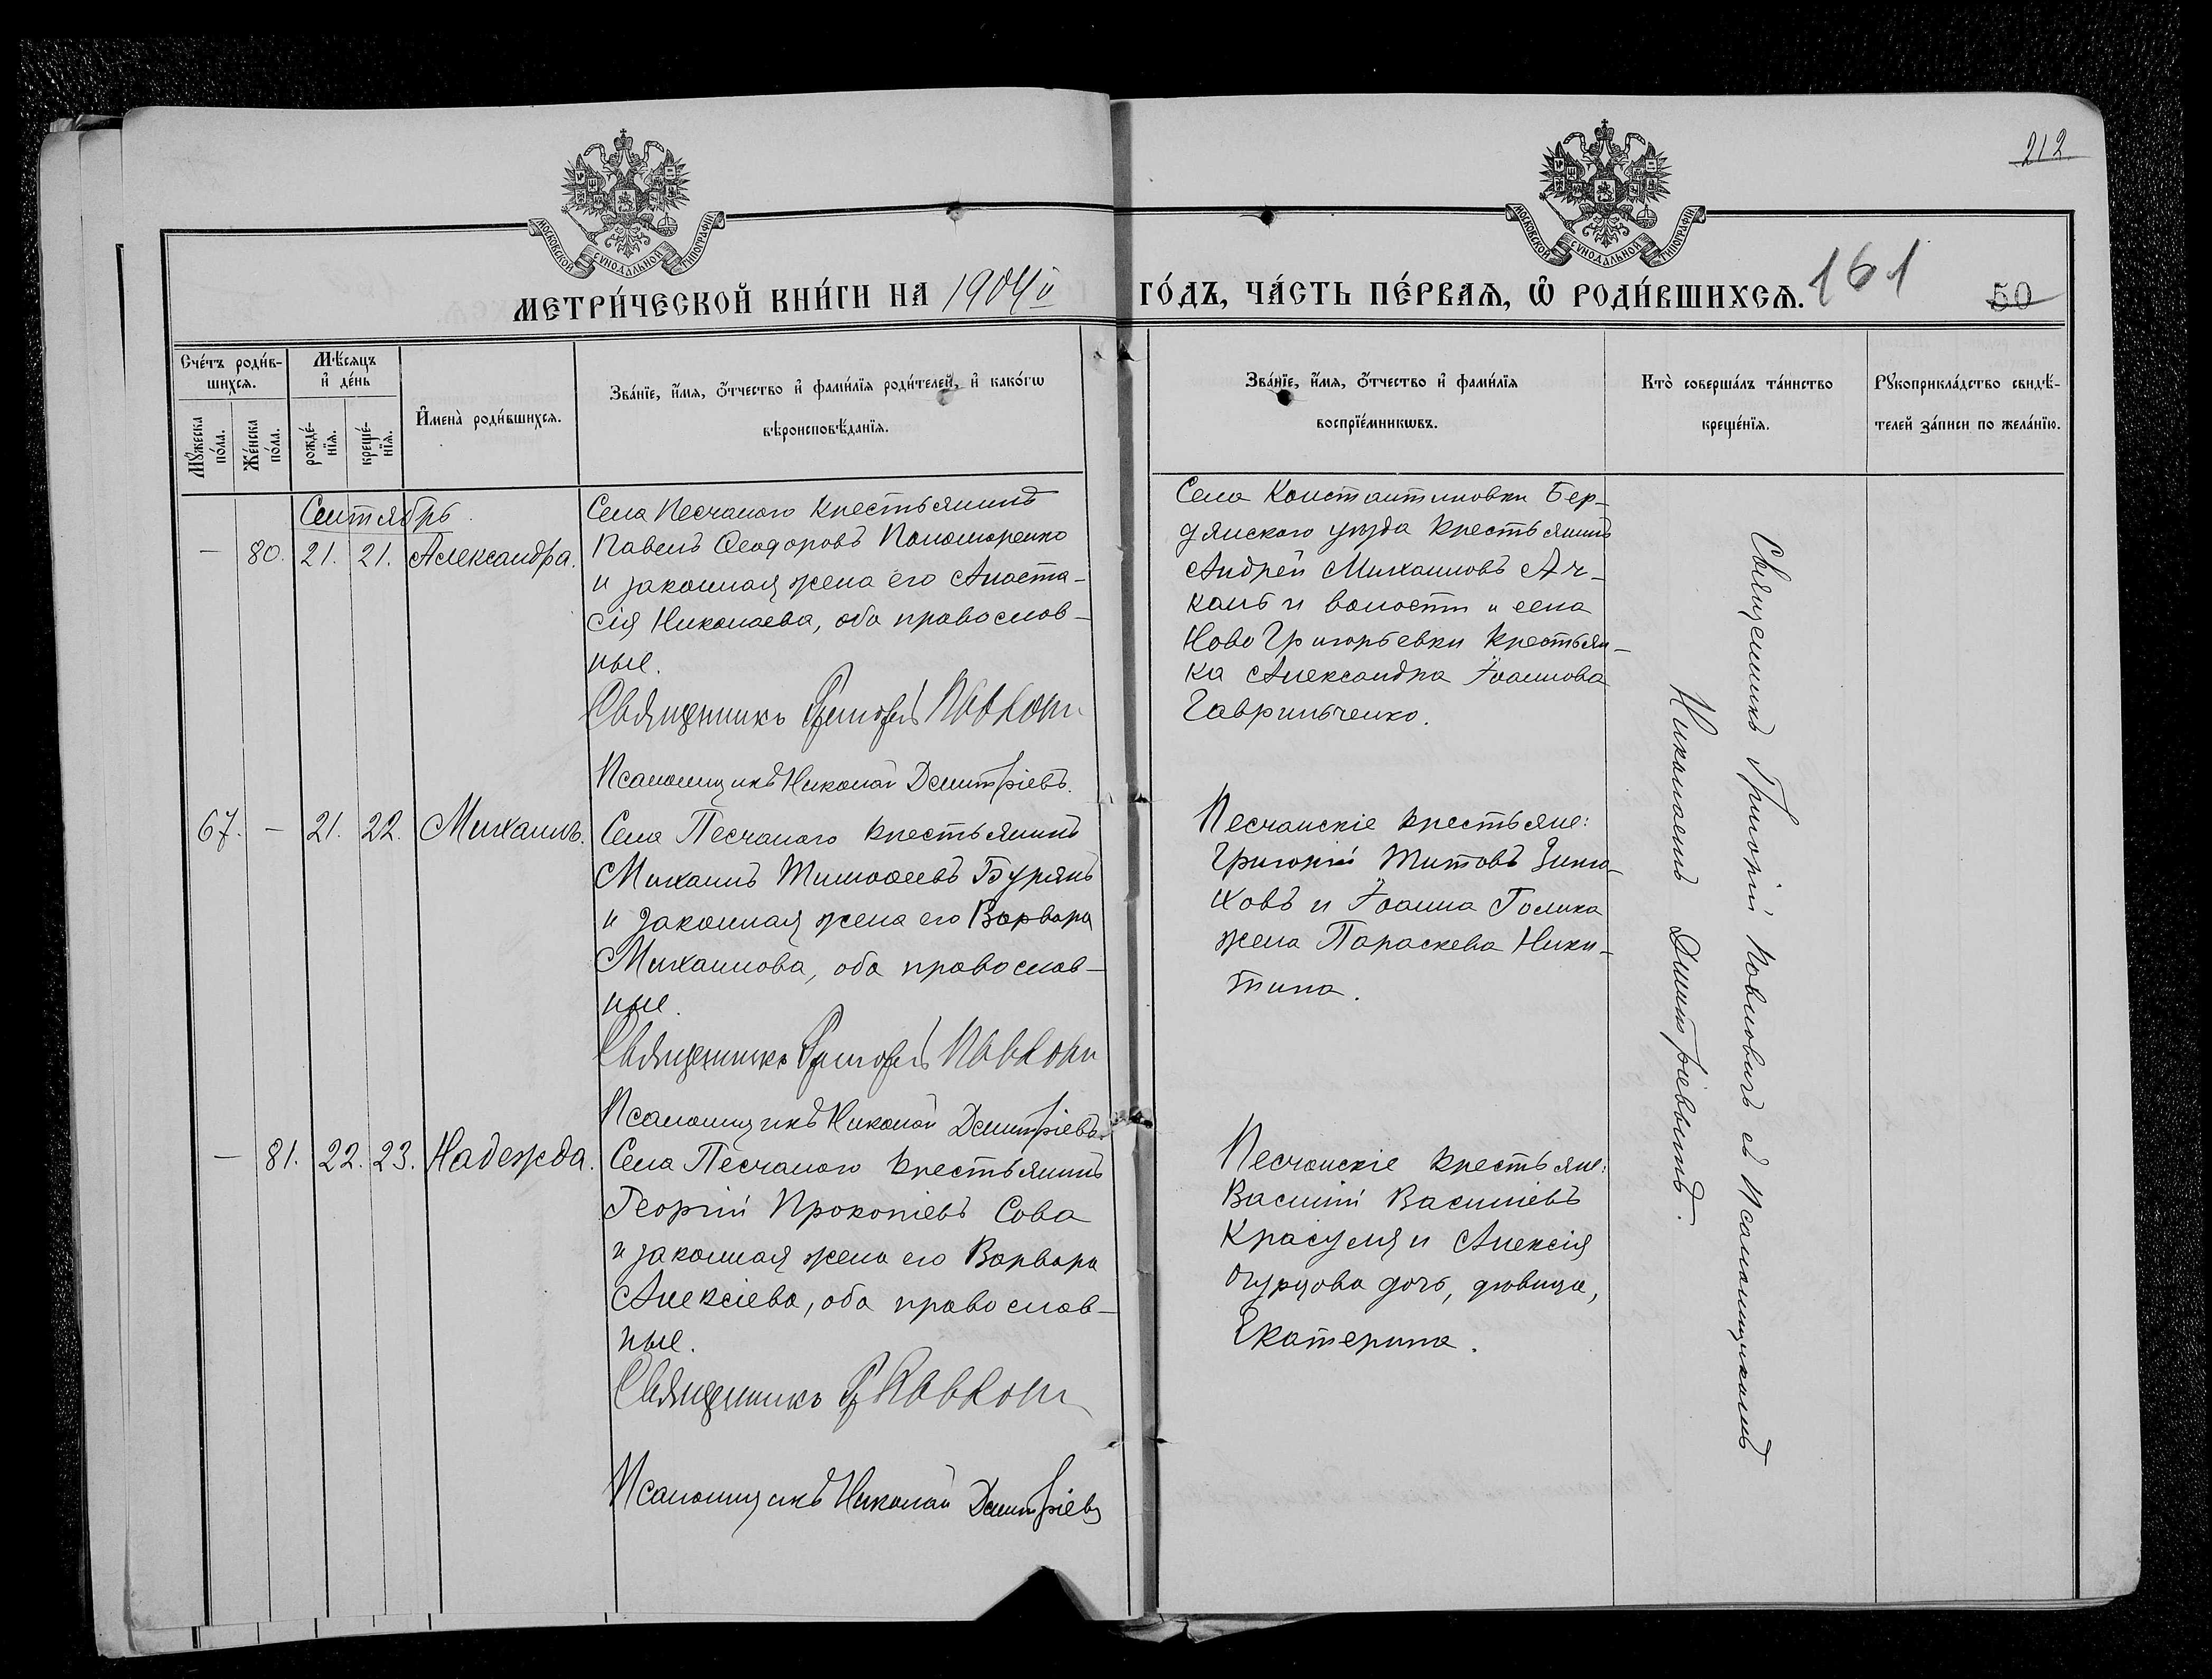 212
МОСКОВСКОЙ СУНОДАЛЬНОЙ ТИПОГРАФІИ
МОСКОВСКОЙ СУНОДАЛЬНОЙ ТИПОГРАФІИ
МЕТРИ́ЧЕСКОЙ КНИ́ГИ НА 1904й ГО́ДЪ, ЧА́СТЬ ПЕ́РВАѦ, Ѽ РОДИ́ВШИХСѦ. 161
50
Счéтъ роди́в-
шихсѧ.
Мꙋ́жеска
по́ла.
Же́нска
по́ла.
Мѣ́сѧцъ
и҆ де́нь
рожде́-
нїѧ.
креще́-
нїѧ.
И҆мена̀ роди́вшихсѧ.
Зва́нїе, и҆́мѧ, ѻ҆́тчество и҆ фами́лїѧ роди́телей, и҆ како́гѡ
вѣроисповѣ́данїѧ.
Зва́нїе, и҆́мѧ, ѻ҆́тчество и҆ фами́лїѧ
воспрїе́мникѡвъ.
Кто̀ соверша́лъ та́инство
креще́нїѧ.
Рꙋкоприкла́дство свидѣ́-
телей за́писи по жела́нїю.
Сентябрь.
— 80. 21. 21. Александра.
Села Песчаного крестьянинъ
Павелъ Ѳеодоровъ Пономаренко
и законная жена его Анаста-
сія Николаева, оба православ-
ные.
Священникъ Григорій Павлови
Псаломщикъ Николай Дмитріевъ.
Села Константиновки Бер-
дянскаго уѣзда крестьянинъ
Андрей Михаиловъ Ач-
канъ и волости и села
Ново Григорьевки крестьян-
ка Александра Іоаннова
Гаврильченко.
67. — 21. 22. Михаилъ.
Села Песчаного крестьянинъ
Михаилъ Тимоѳеевъ Бурянъ
и законная жена его Варвара
Михаилова, оба православ-
ные.
Священникъ Григорій Павлови
Псаломщикъ Николай Дмитріевъ.
Песчанскіе крестьяне:
Григорій Титовъ Зино-
ховъ и Іоанна Голика
жена Параскева Ники-
тина.
— 81. 22. 23. Надежда.
Села Песчаного крестьянинъ
Георгій Прокопіевъ Сова
и законная жена его Варвара
Алексіева, оба православ-
ные.
Священникъ Г Павлови
Псаломщикъ Николай Дмитріевъ
Песчанскіе крестьяне:
Василій Василіевъ
Красуля и Алексія
Огурцова дочь, дѣвица,
Екатерина.
Священникъ Григорій Павловичъ съ Псаломщикомъ
Николаемъ Дмитріевымъ.